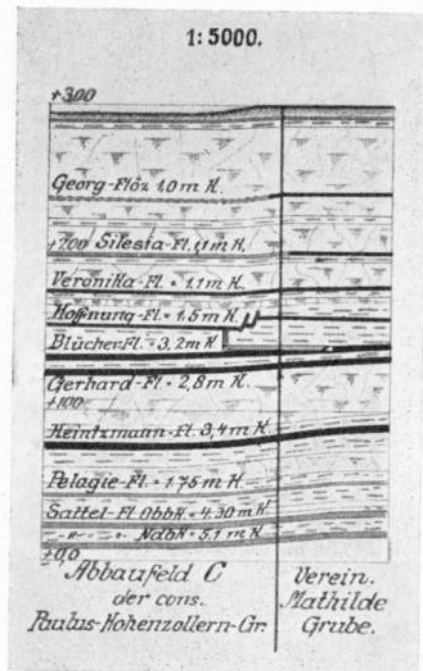 1:5000.
+300
Georg-Flöz 1.0 m K.
+200 Silesia-Fl. 1,1 m K.
Veronika-Fl. = 1.1 m K.
Hoffnung-Fl. = 1.5 m K.
Blücher-Fl. = 3,2 m K.
Gerhard-Fl. = 2,8 m K.
+100
Heintzmann-Fl. 3,4 m K.
Pelagie-Fl. = 1.75 m K.
Sattel-Fl. Obbk. = 4.30 m K.
Ndbk = 5,1 m K.
±0,0
Abbaufeld C
der cons.
Paulus-Hohenzollern-Gr.
Verein.
Mathilde
Grube.